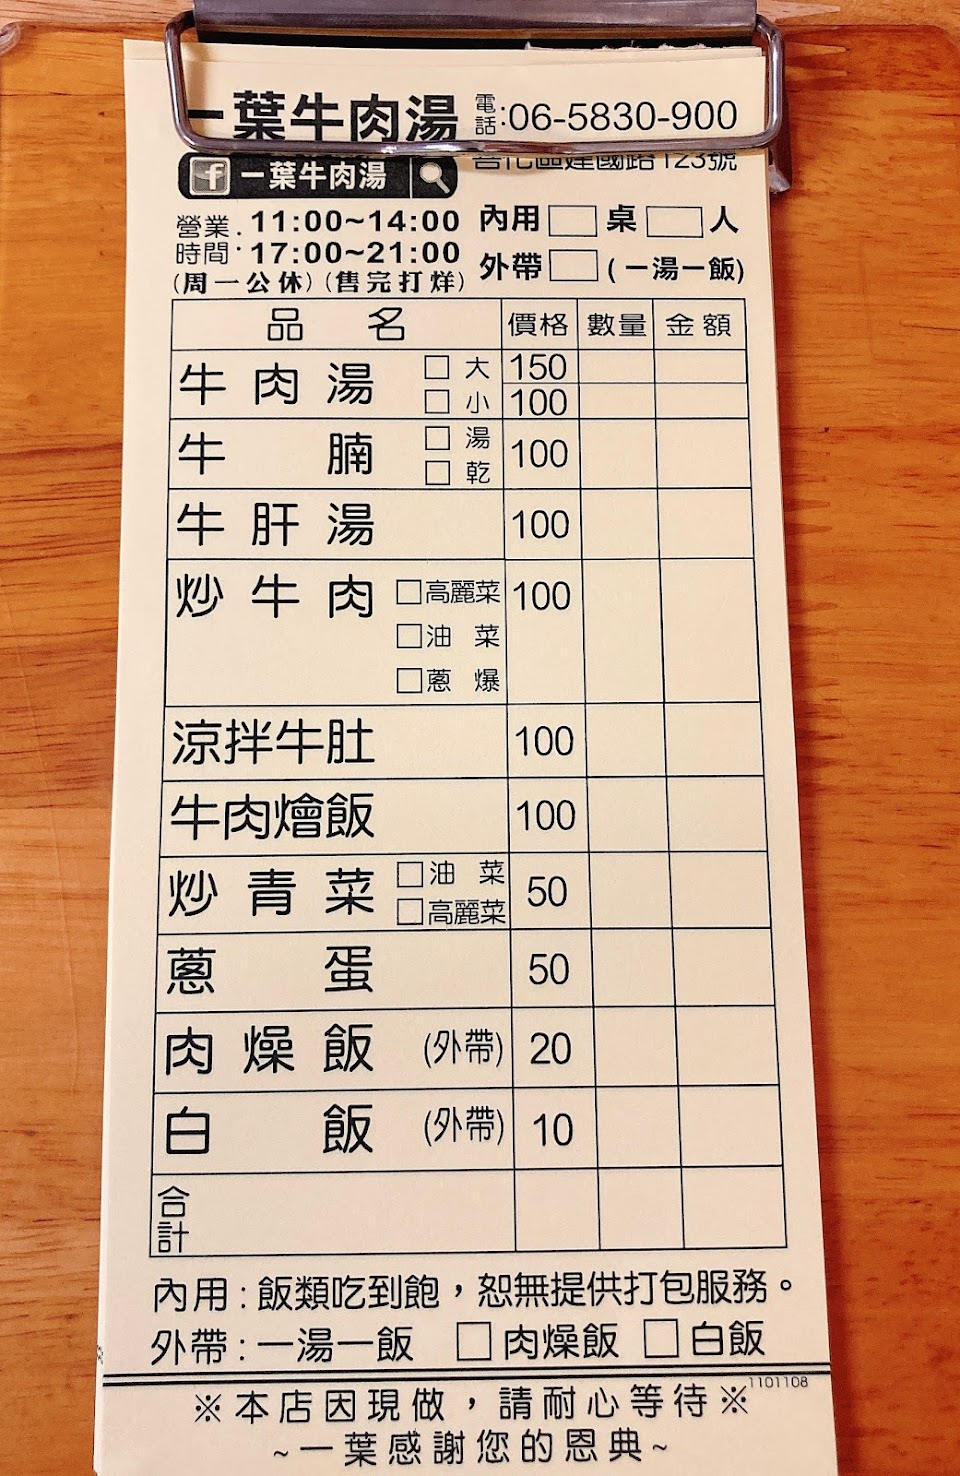 一葉牛肉湯 電話:06-5830-900
善化區建國路123號
f 一葉牛肉湯
營業時間: 11:00~14:00
17:00~21:00
(周一公休)(售完打烊)
內用□桌□人
外帶□(一湯一飯)
品名 價格 數量 金額
牛肉湯 □大 150
□小 100
牛腩 □湯 □乾 100
牛肝湯 100
炒牛肉 □高麗菜 100
□油菜
□蔥爆
涼拌牛肚 100
牛肉燴飯 100
炒青菜 □油菜 □高麗菜 50
蔥蛋 50
肉燥飯 (外帶) 20
白飯 (外帶) 10
合計
內用:飯類吃到飽,恕無提供打包服務。
外帶:一湯一飯 □肉燥飯 □白飯
1101108
※本店因現做,請耐心等待※
~一葉感謝您的恩典~